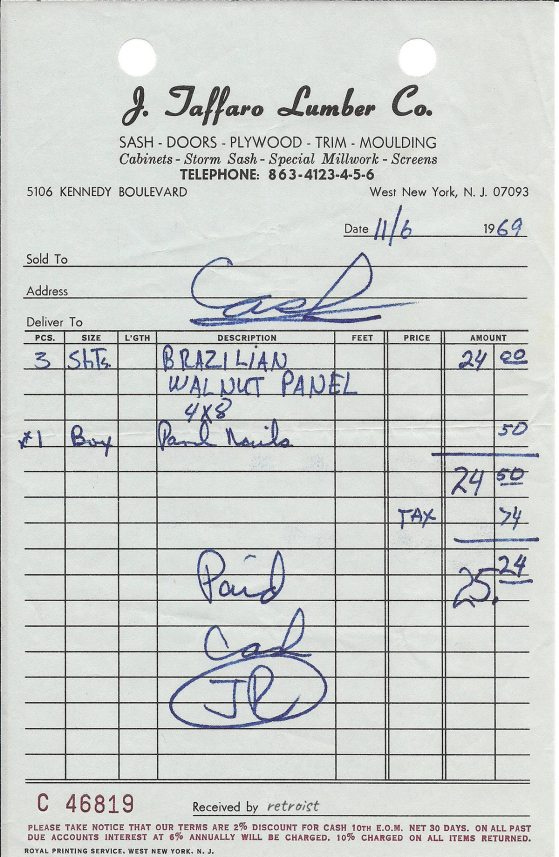 J. Taffaro Lumber Co.
SASH - DOORS - PLYWOOD - TRIM - MOULDING
Cabinets - Storm Sash - Special Millwork - Screens
TELEPHONE: 863-4123-4-5-6
5106 KENNEDY BOULEVARD West New York, N. J. 07093
Date 11/6 1969
Sold To
Address Cash
Deliver To
PCS. SIZE L'GTH DESCRIPTION FEET PRICE AMOUNT
3 ShTs BRAZILIAN 24 00
WALNUT PANEL
4X8
#1 Box Panel Nails 50
24 50
TAX 74
Paid 25.24
Cash
JR
C 46819 Received by retroist
PLEASE TAKE NOTICE THAT OUR TERMS ARE 2% DISCOUNT FOR CASH 10TH E.O.M. NET 30 DAYS. ON ALL PAST
DUE ACCOUNTS INTEREST AT 6% ANNUALLY WILL BE CHARGED. 10% CHARGED ON ALL ITEMS RETURNED.
ROYAL PRINTING SERVICE, WEST NEW YORK, N. J.